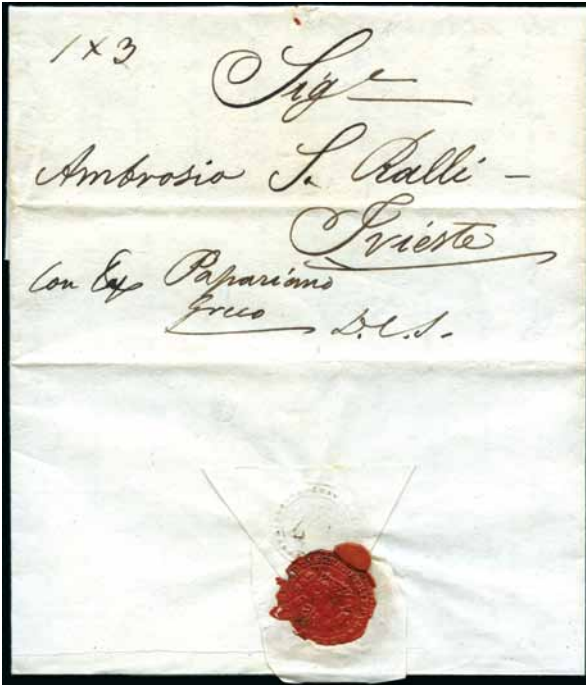 1 x 3
Sigr
Ambrosio S. Ralli –
Trieste
Con Cap Papariano
Greco D.C.S.